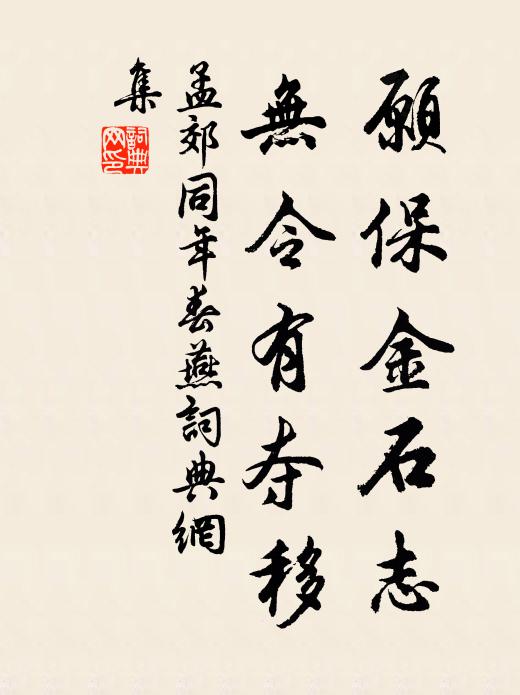 願保金石志
無令有夺移
孟郊同年春燕詞典網
集
詞典
网印